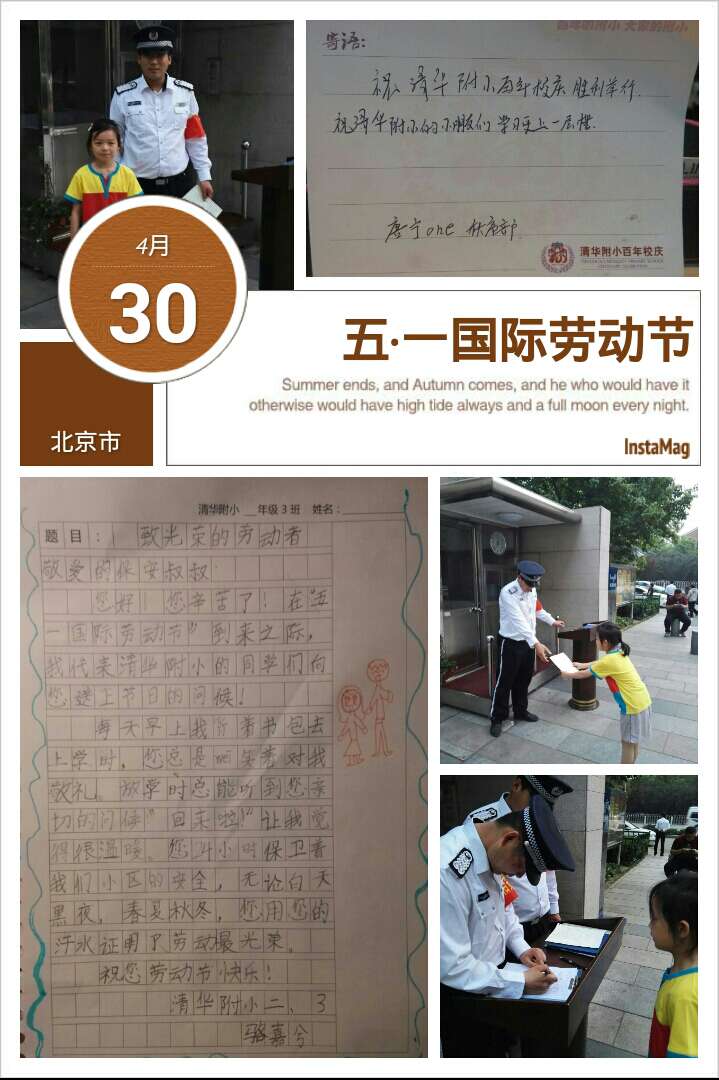 百年的清小 大家的附小
寄语:
祝清华附小百年校庆胜利举行.
祝清华附小的小朋友们学习更上一层楼.
唐宁one 秩序部
清华附小百年校庆
4月
30
五·一国际劳动节
Summer ends, and Autumn comes, and he who would have it
otherwise would have high tide always and a full moon every night.
北京市
InstaMag
清华附小 __年级 3 班 姓名:
题目: 致光荣的劳动者
敬爱的保安叔叔:
您好!您辛苦了!在"五
一国际劳动节"到来之际,
我代表清华附小的同学们向
您送上节日的问候!
每天早上我背着书包去
上学时,您总是mi笑着对我
敬礼。放学时总能听到您亲
切的问候"回来啦!"让我觉
得很温暖。您24小时保卫着
我们小区的安全,无论白天
黑夜,春夏秋冬,您用您的
汗水证明了劳动最光荣。
祝您劳动节快乐!
清华附小二、3
骆嘉兮